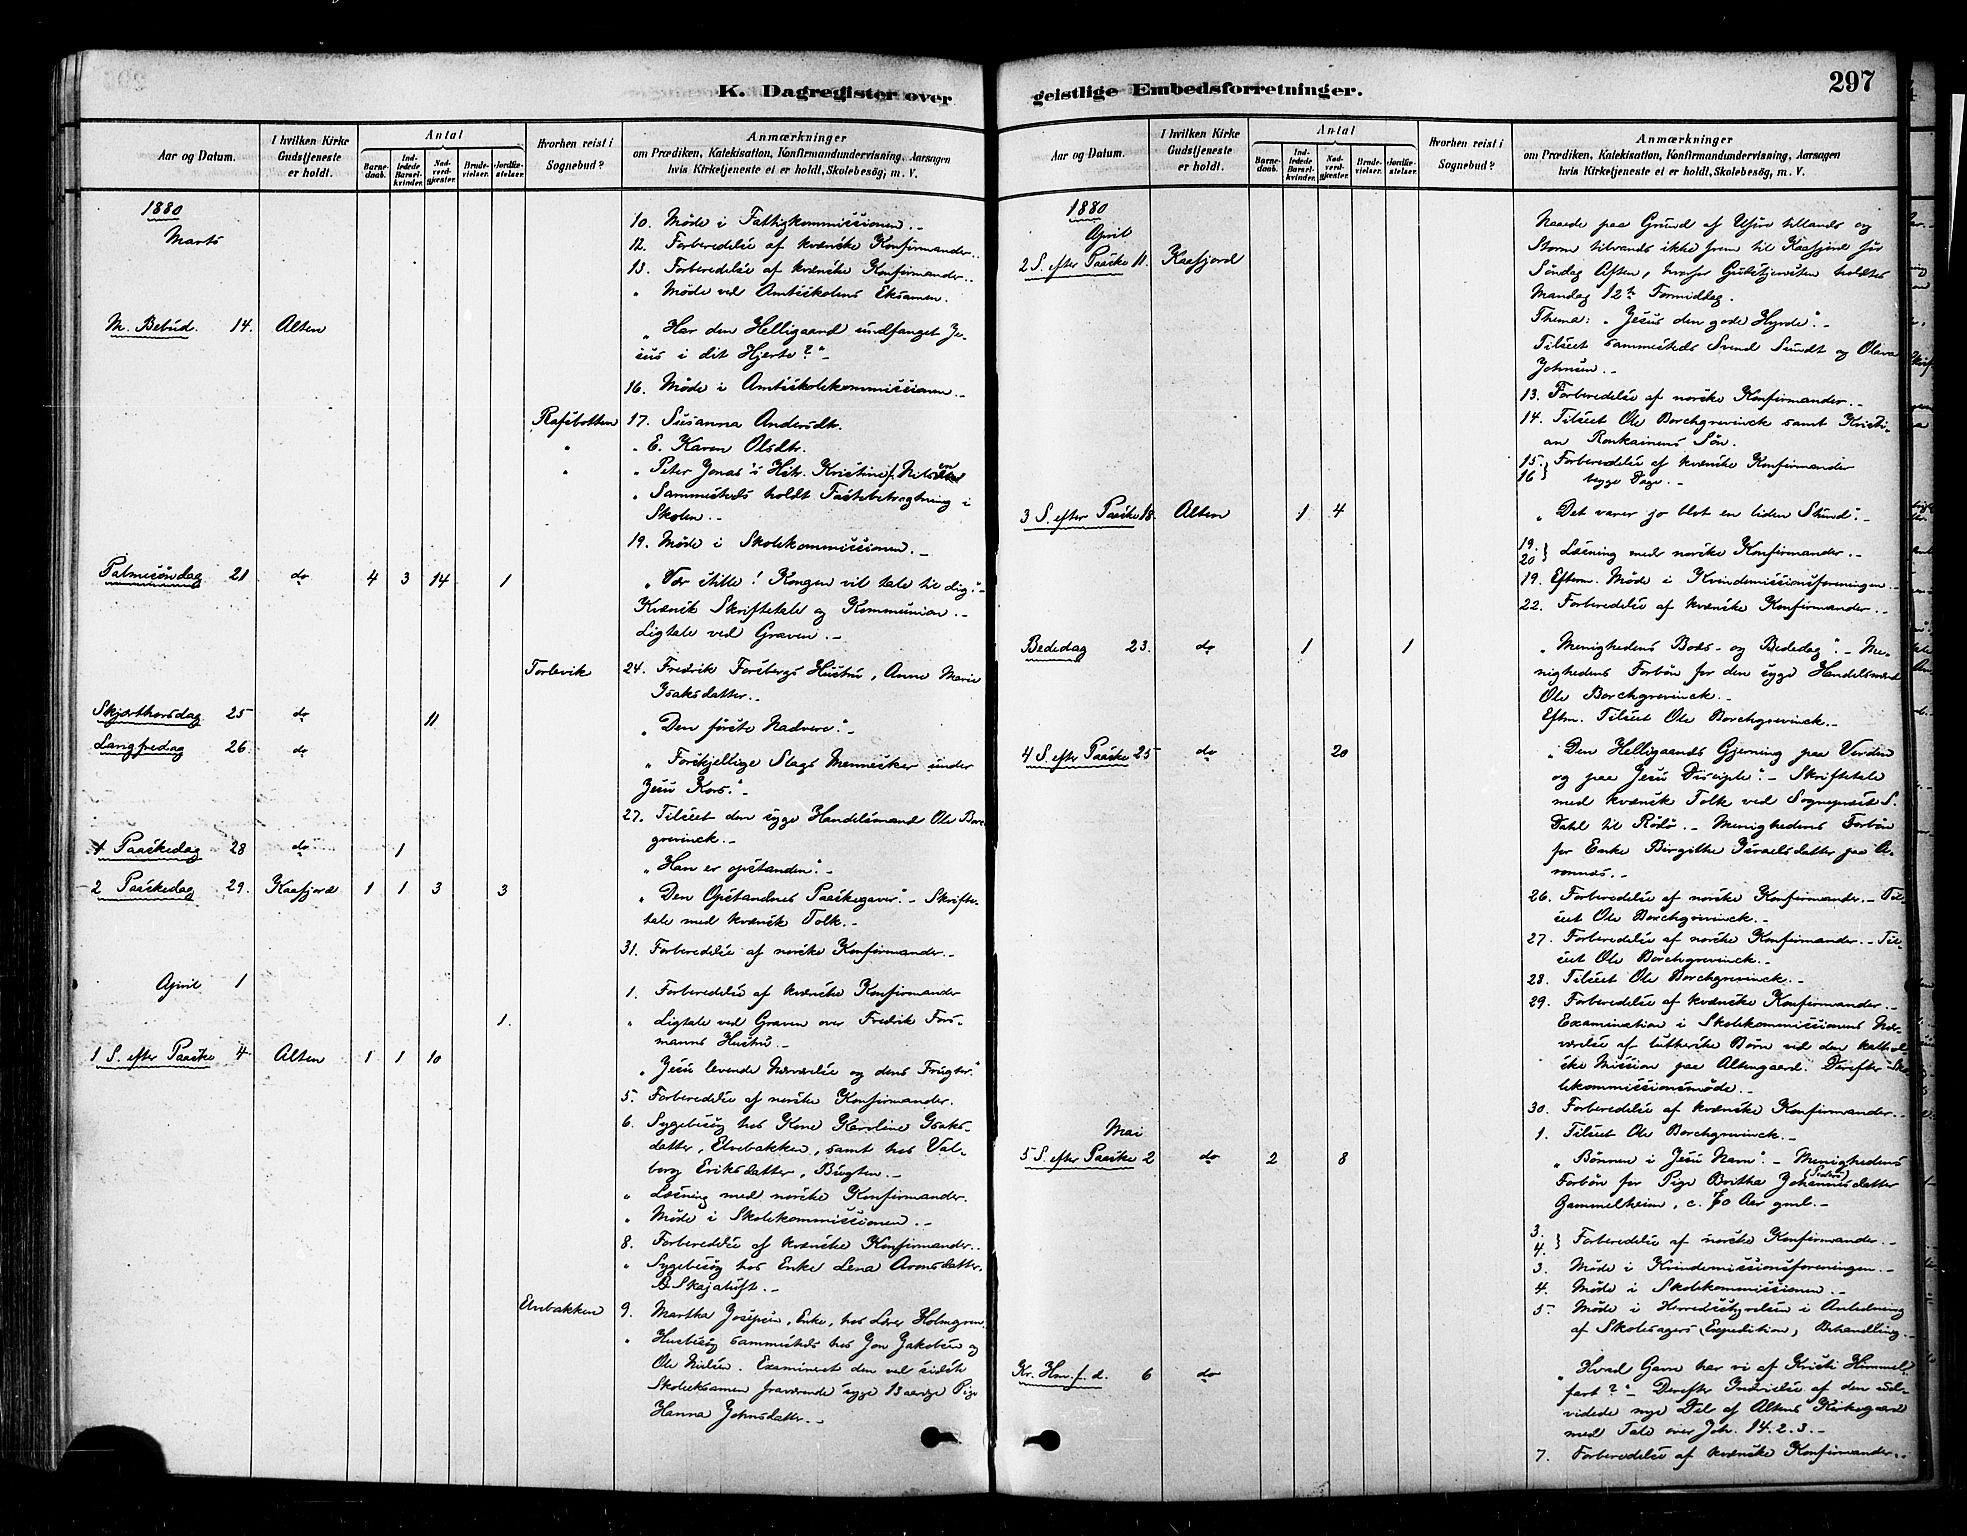 K. Dagregister over
Aar og Datum.
I hvilken Kirke Gudstjeneste er holdt.
Antal
Barnedaab.
Indledede Barselkvinder.
Nadverdgjester.
Brudevielser.
Jordfæstelser.
Hvorhen reist i Sognebud?
Anmærkninger
om Prædiken, Katekisation, Konfirmandundervisning, Aarsagen
hvis Kirketjeneste ei er holdt, Skolebesøg, m. V.
1880
Marts
10. Møde i Fattigkommissionen.-
12. Forberedelse af kvænske Konfirmander.-
13. Forberedelse af kvænske Konfirmander.-
" Møde ved Amtsskolens Eksamen.
M. Bebud. 14. Alten
"Har den Helligaand undfanget Je-
sus i dit Hjerte?"-
16. Møde i Amtsskolekommissionen.-
Rafsbotten 17. Susanna Andersdtr.
" " E. Karen Olsdtr.
" " Peter Jonas's Hstr. Kristine f.
" Sammesteds holdt Fastebetragtning i
Skolen.-
19. Møde i Skolekommissionen.-
Palmesøndag 21 do 4 3 14 1
"Vær stille! Kongen vil tale til dig".-
Kvænsk Skriftetale og Kommunion.-
Ligtale ved Graven.-
Torlevik 24. Fredrik Forsbergs Hustru, Anne Marie
Isaksdatter.-
Skjærthorsdag 25 do 11
"Den første Nadvere".-
Langfredag 26. do
"Forskjellige Slags Mennesker under
Jesu Kors."-
27. Tilseet den syge Handelsmand Ole Borc-
grevinck.-
1 Paaskedag 28 do 1
"Han er opstanden".-
2 Paaskedag 29. Kaafjord 1 1 3 3
"Den Opstandnes Paaskegaver".- Skrifte-
tale med kvænsk Tolk.-
31. Forberedelse af norske Konfirmander.-
April 1
1. Forberedelse af kvænske Konfirmander
1. " Ligtale ved Graven over Fredrik Fors-
manns Hustru.-
1 S. efter Paaske 4 Alten 1 1 10
"Jesu levende Nærværelse og dens Frugter."
5. Forberedelse af norske Konfirmander.
6. Sygebesøg hos Kone Karoline Isaks-
datter, Elvebakken, samt hos Val-
borg Eriksdatter, Bugten.-
" Læsning med norske Konfirmander.
" Møde i Skolekommissionen.-
8. Forberedelse af kvænske Konfirmander.-
" Sygebesøg hos Enke Lena Aronsdatter.
Skajaluft.-
Elvebakken 9. Martha Josepsen, Enke, hos Lærer Holmgren.
" Husbesøg sammesteds hos Jon Jakobsen og
Ole Nielsen. Examineret den ved sidste
Skoleeksamen fraværende syge 13 aarige Pige
Hanna Johnsdatter.-
geistlige Embedsforretninger.
297
Aar og Datum.
I hvilken Kirke Gudstjeneste er holdt.
Antal
Barnedaab.
Indledede Barselkvinder.
Nadverdgjester.
Brudevielser.
Jordfæstelser.
Hvorhen reist i Sognebud?
Anmærkninger
om Prædiken, Katekisation, Konfirmandundervisning, Aarsagen
hvis Kirketjeneste ei er holdt, Skolebesøg, m. V.
1880
April
2 S. efter Paaske 11. Kaafjord
Naade paa Grund af Uføre tillands og
Storm tilvands ikke frem til Kaafjord før
Søndag Aften, hvorfor Gudstjenesten holdtes
Mandag 12te Formiddag.
Thema: "Jesus den gode Hyrde".-
Tilseet sammesteds Svend Sundt og Olava
Johnsen.-
13. Forberedelse af norske Konfirmander.-
14. Tilseet Ole Borchgrevinck samt Kristi-
an Ronkainens Søn.
15. } Forberedelse af kvænske Konfirmander
16 } begge Dage.-
3 S. efter Paaske 18. Alten 1 4
"Det varer jo blot en liden Stund".-
19. } Læsning med norske Konfirmander.-
20 }
19. Efterm. Møde i Kvindemissionsforeningen.-
22. Forberedelse af kvænske Konfirmander.-
Bededag 23. do 1 1
"Menighedens Bods- og Bededag".- Me-
nighedens Forbøn for den syge Handelsmand
Ole Borchgrevinck.-
Eftm. Tilseet Ole Borchgrevinck.-
4 S. efter Paaske 25 do 20
"Den Helligaands Gjerning paa Verden
og paa Jesu Disciple".- Skriftetale
med kvænsk Tolk ved Sognepræst S.
Dahl til Rødø.- Menighedens Forbøn
for Enke Birgithe Israelsdatter paa A-
ronnæs.-
26. Forberedelse af norske Konfirmander.- Til-
seet Ole Borchgrevinck.-
27. Forberedelse af norske Konfirmander.- Til-
seet Ole Borchgrevinck.-
28. Tilseet Ole Borchgrevinck.-
29. Forberedelse af kvænske Konfirmander.-
Examination i Skolekommissionens Nær-
værelse af lutherske Børn ved den katol-
ske Mission paa Altengaard. Derefter Sko-
lekommissionsmøde.-
30. Forberedelse af kvænske Konfirmander.-
Mai
1. Tilseet Ole Borchgrevinck.-
5 S. efter Paaske 2 do 2 8
"Bønnen i Jesu Navn".- Menighedens
Forbøn for Pige Britha Johannesdatter
Gammelheim, c. 70 Aar gml.-
3. } Forberedelse af norske Konfirmander.-
4. }
3. Møde i Kvindemissionsforeningen.-
4. Møde i Skolekommissionen.-
5 Møde i Herredsstyrelsen i Anledning
af Skolesagers (Expedition) Behandling.-
Kr. Hm. f. d. 6 do
"Hvad Gavn har vi af Kristi Himmel-
fart?"- Derefter Indvielse af den ud-
videde nye Del af Altens Kirkegaard
med Tale over Joh. 14. 2. 3.-
7. Forberedelse af kvænske Konfirmander.-